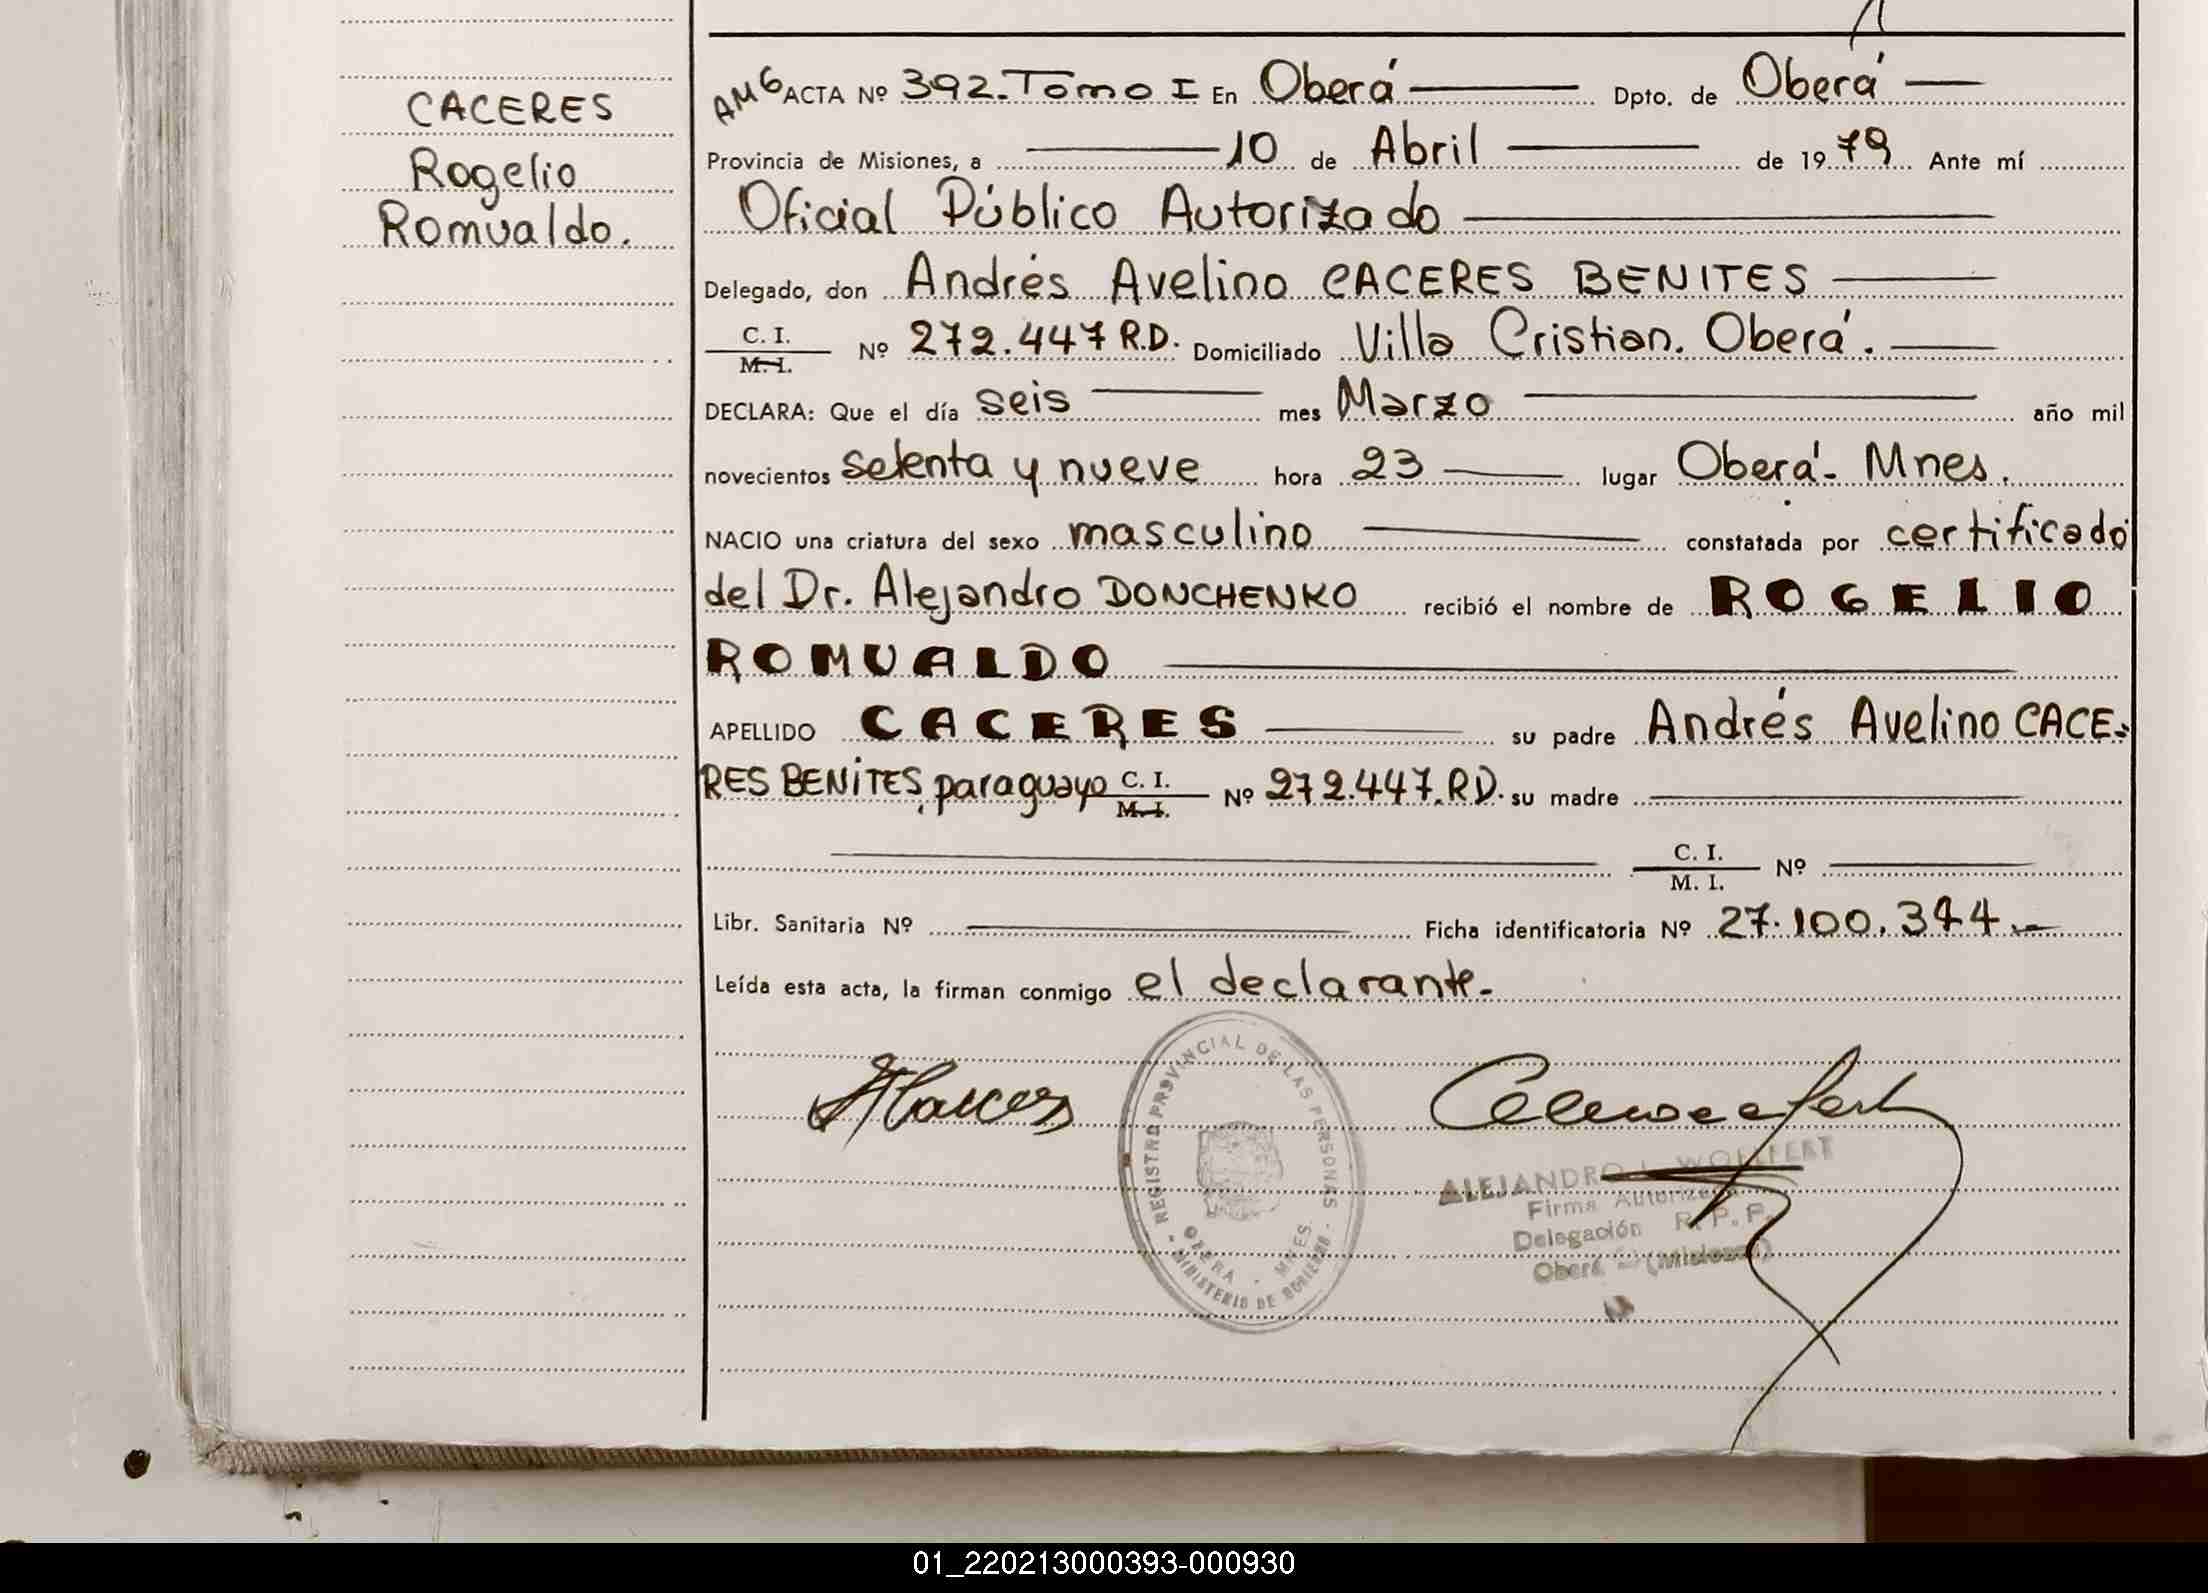 CACERES
Rogelio
Romualdo.
AMG ACTA Nº 392. Tomo I En Oberá Dpto. de Oberá
Provincia de Misiones, a 10 de Abril de 1979 Ante mí
Oficial Público Autorizado
Delegado, don Andrés Avelino CACERES BENITES
C. I.
M. I. Nº 272.447 R.D. Domiciliado Villa Cristian. Oberá.
DECLARA: Que el día seis mes Marzo año mil
novecientos setenta y nueve hora 23 lugar Oberá - Mnes.
NACIO una criatura del sexo masculino constatada por certificado
del Dr. Alejandro DONCHENKO recibió el nombre de ROGELIO
ROMUALDO
APELLIDO CACERES su padre Andrés Avelino CACE-
RES BENITES, paraguayo C. I. M. I. Nº 272.447. R.D. su madre
C. I.
M. I. Nº
Libr. Sanitaria Nº Ficha identificatoria Nº 27.100.344.-
Leída esta acta, la firman conmigo el declarante.-
REGISTRO PROVINCIAL DE LAS PERSONAS
OBERA - MNES.
MINISTERIO DE GOBIERNO
ALEJANDRO L. WOLFFERT
Firma Autorizada
Delegación R. P. P.
Oberá (Misiones)
01_220213000393-000930